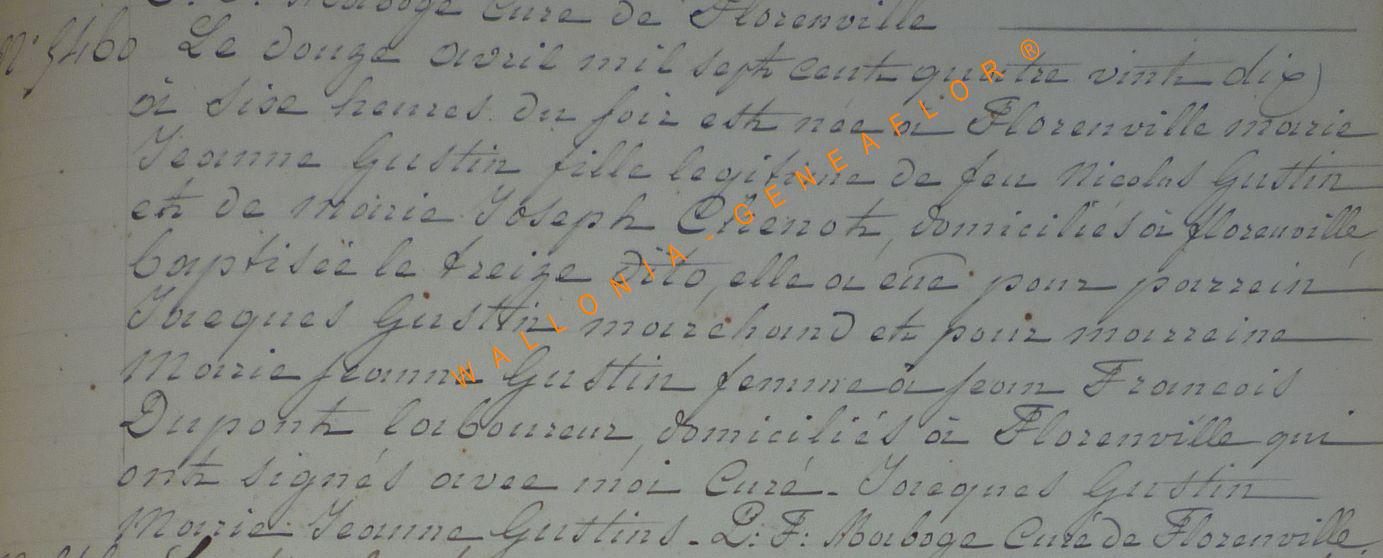 Maboge Curé de Florenville
N° 5460 Le douze avril mil sept cent quatre vint dix
à six heures du soir est née à Florenville marie
Jeanne Gustin fille legitime de feu Nicolas Gustin
et de marie Joseph Chenot, domiciliés à florenville,
baptisée le treize dito, elle a eue pour parrein
Jacques Gustin marchand et pour marreine
Marie jeanne Gustin femme à jean Francois
Dupont laboureur, domiciliés à Florenville qui
ont signés avec moi Curé. Jacques Gustin
Marie Jeanne Gustins. P: F: Maboge Curé de Florenville.
WALLONIA-GENEAFLOR®